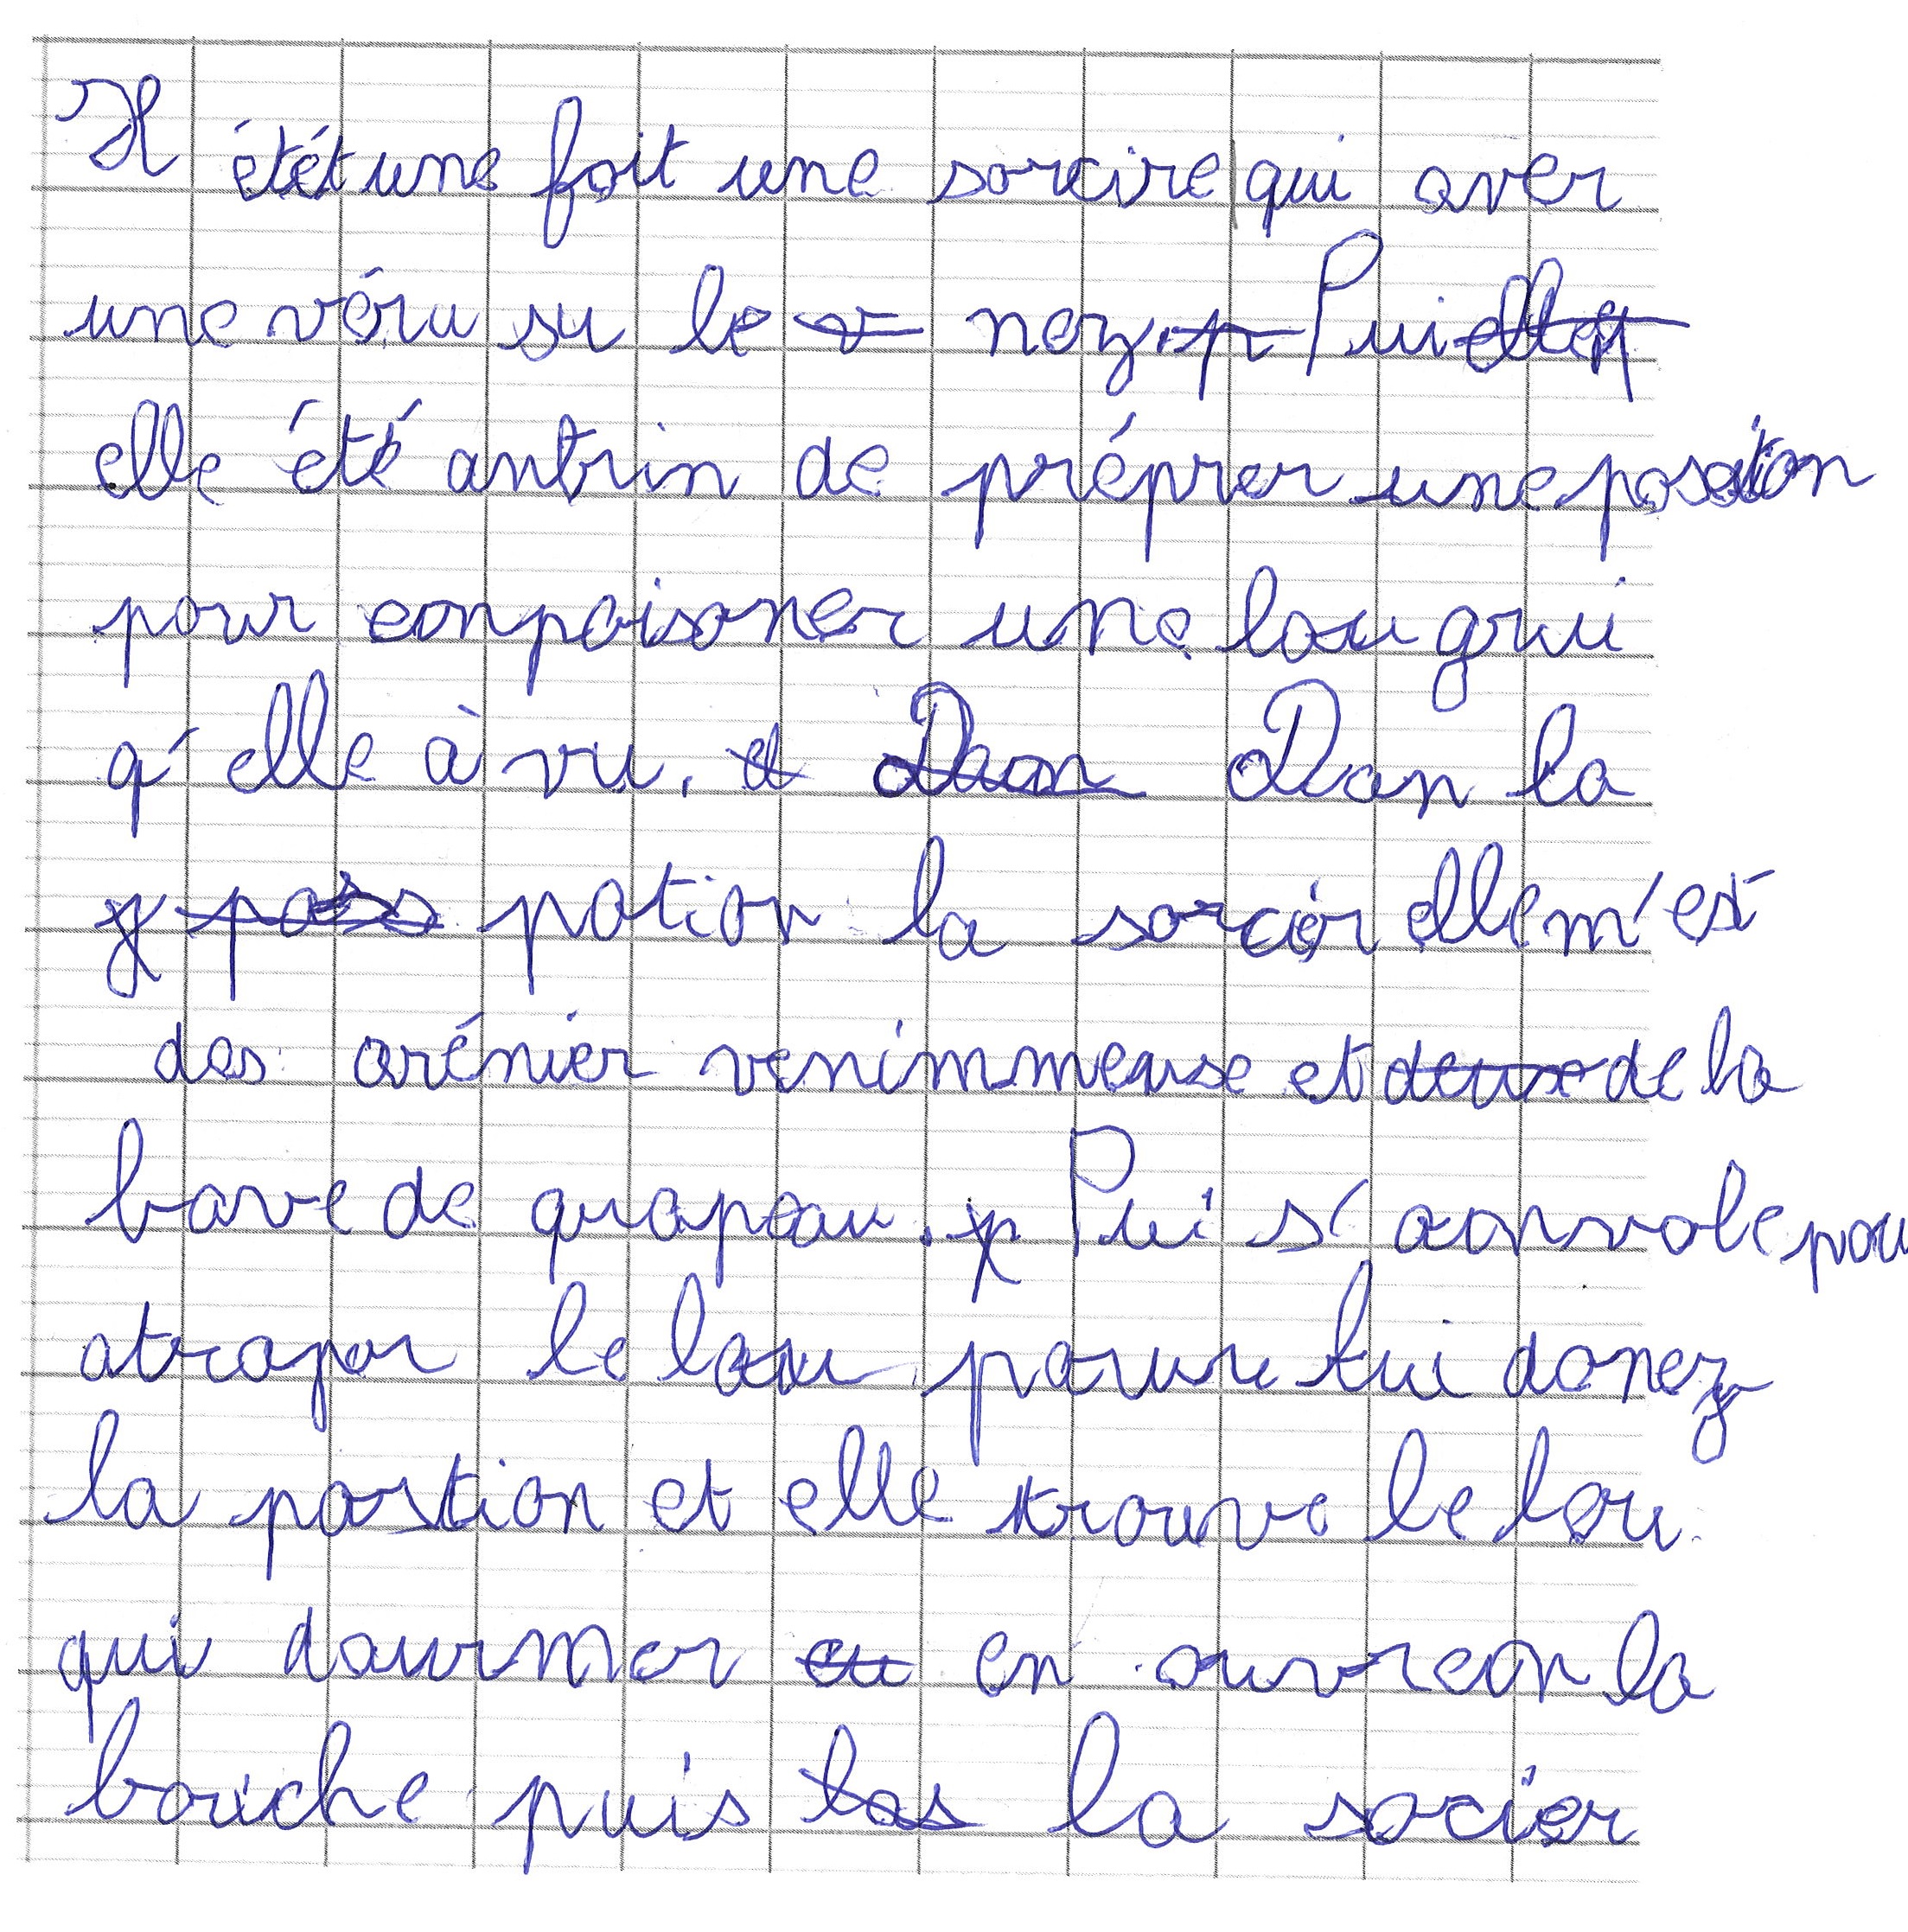 Il étét une foit une sorcire qui aver
une véru su le nez. Pui
elle été antrin de préprer une postion
pour enpoisoner une lou grui
q'elle à vu. Dan la
potion la sorcèr elle m'est
des arénier venimmeuse et de la
bave de qrapeau. Pui s'anvole pou
atraper le lou poure lui donez
la postion et elle trouve le lou
qui dourmer en ouvrean la
bouche puis la socier